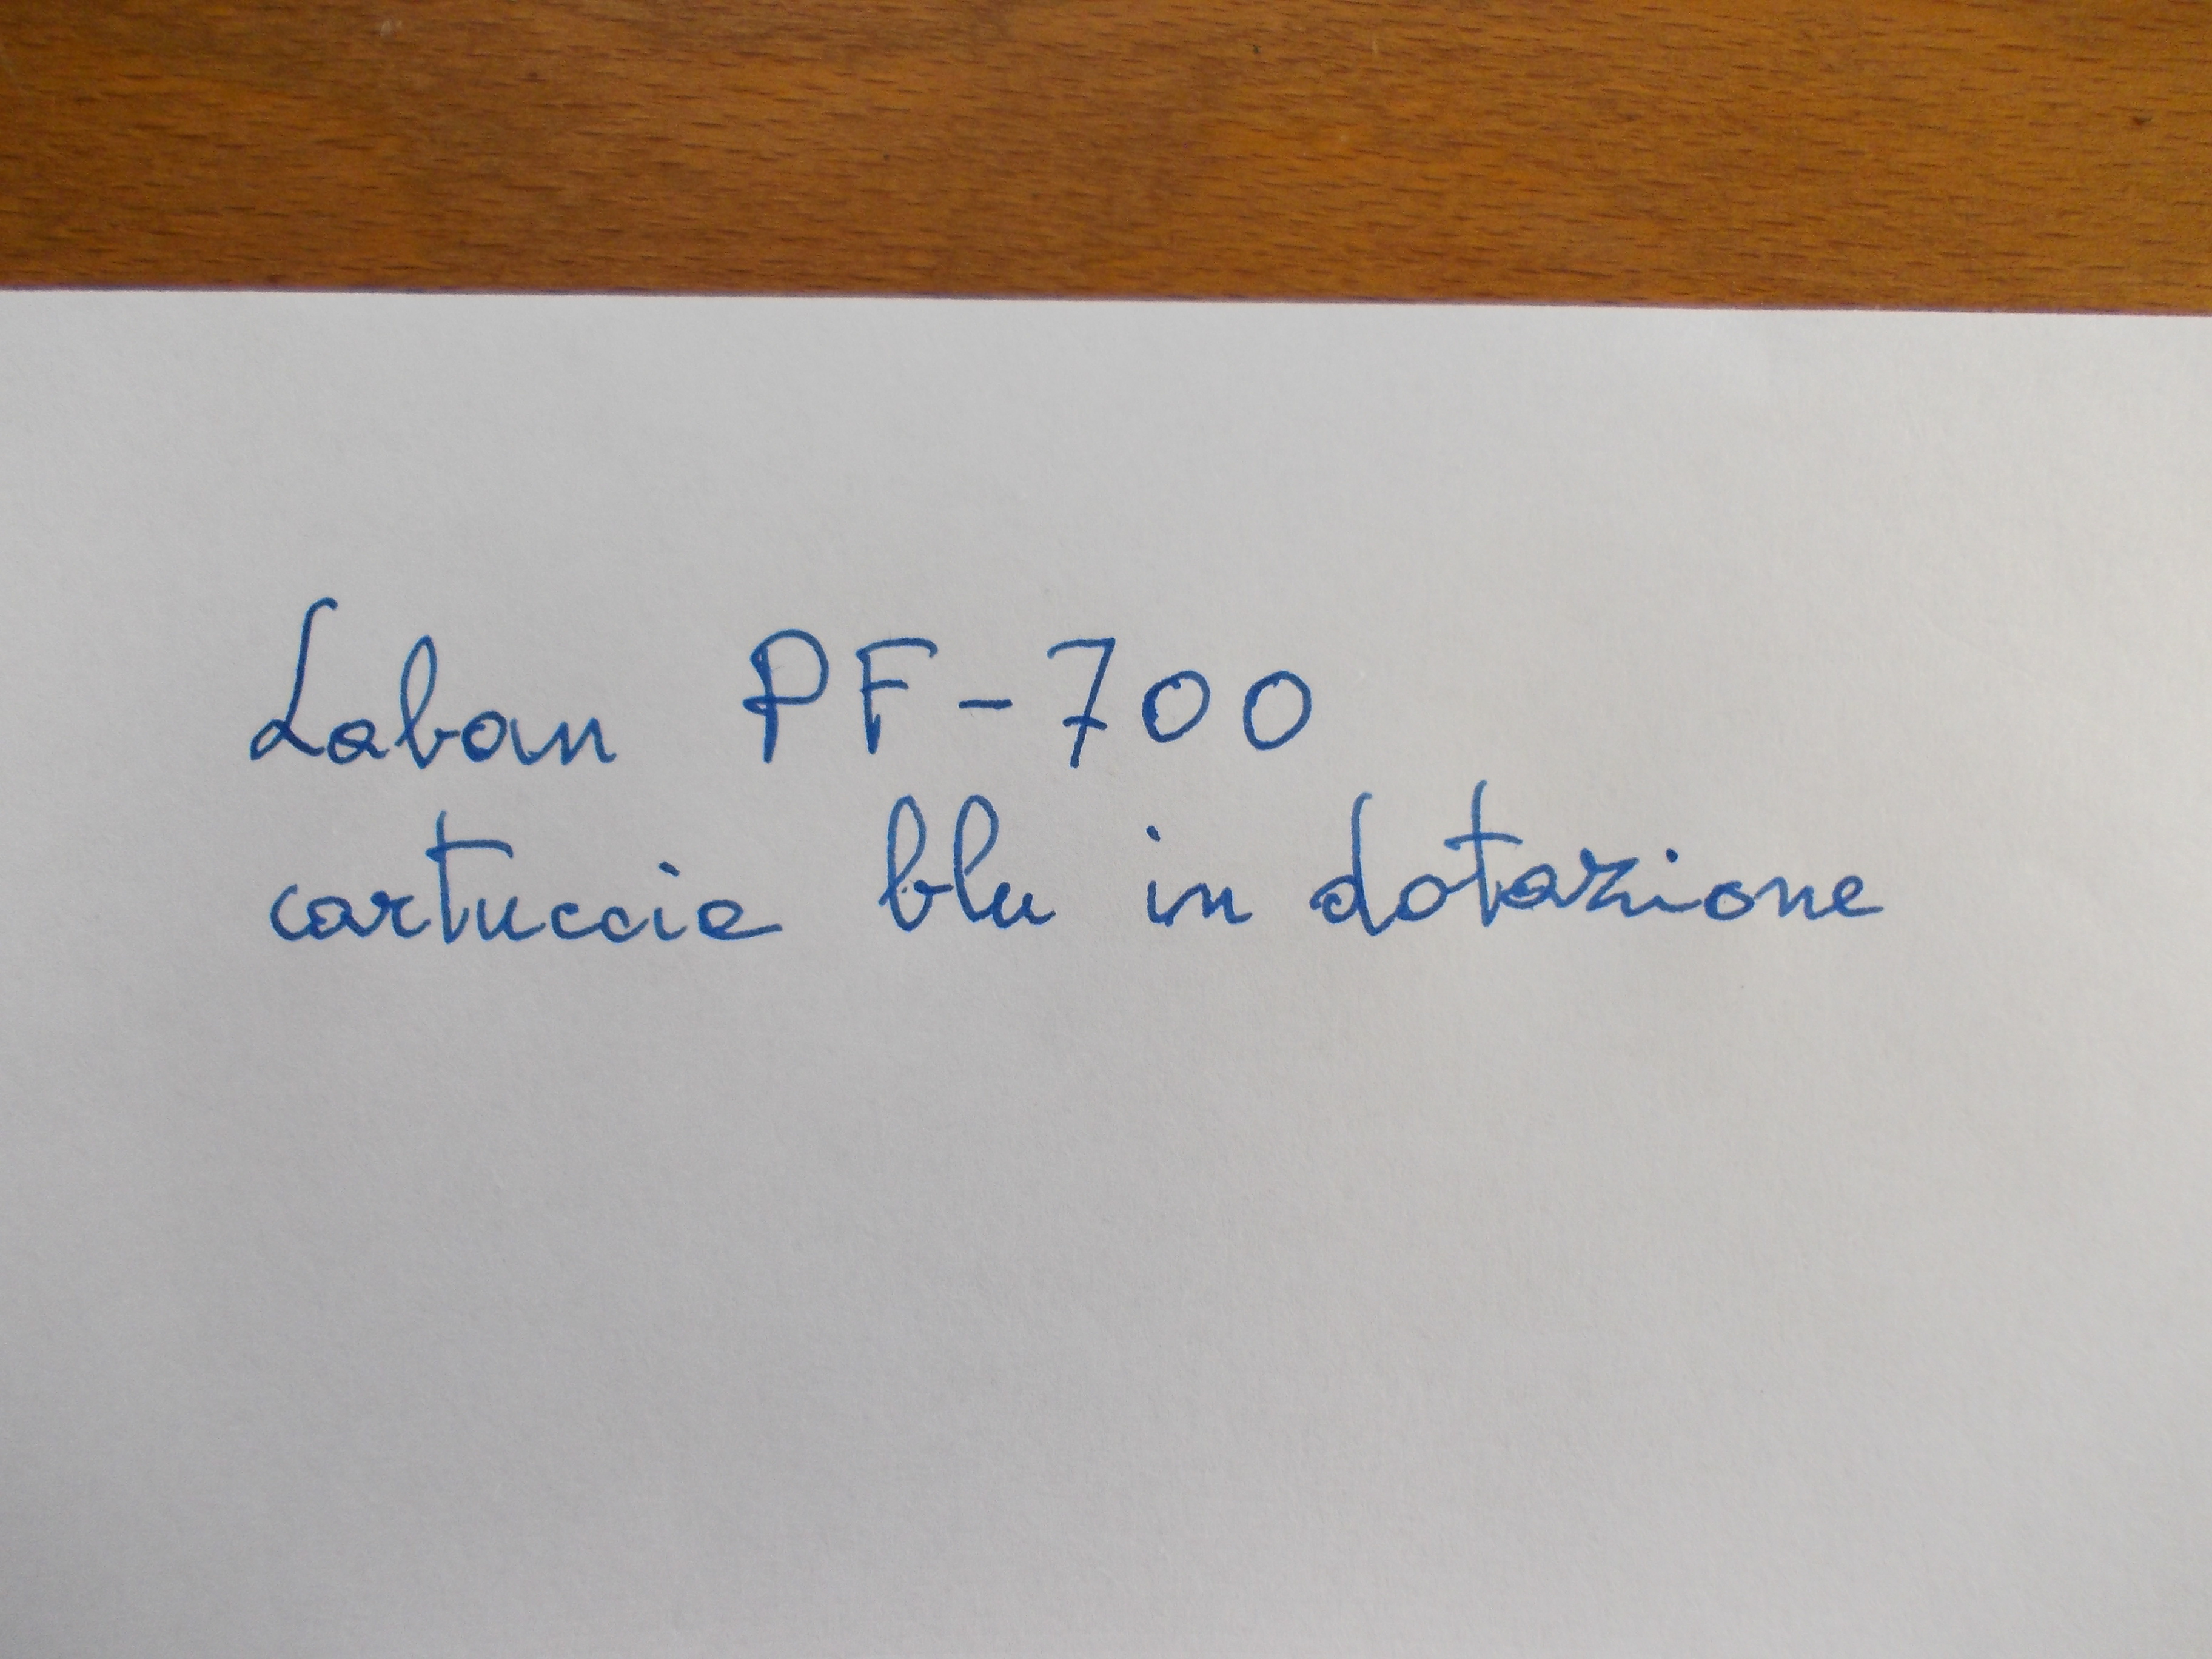 Laban PF-700
cartuccia blu in dotazione